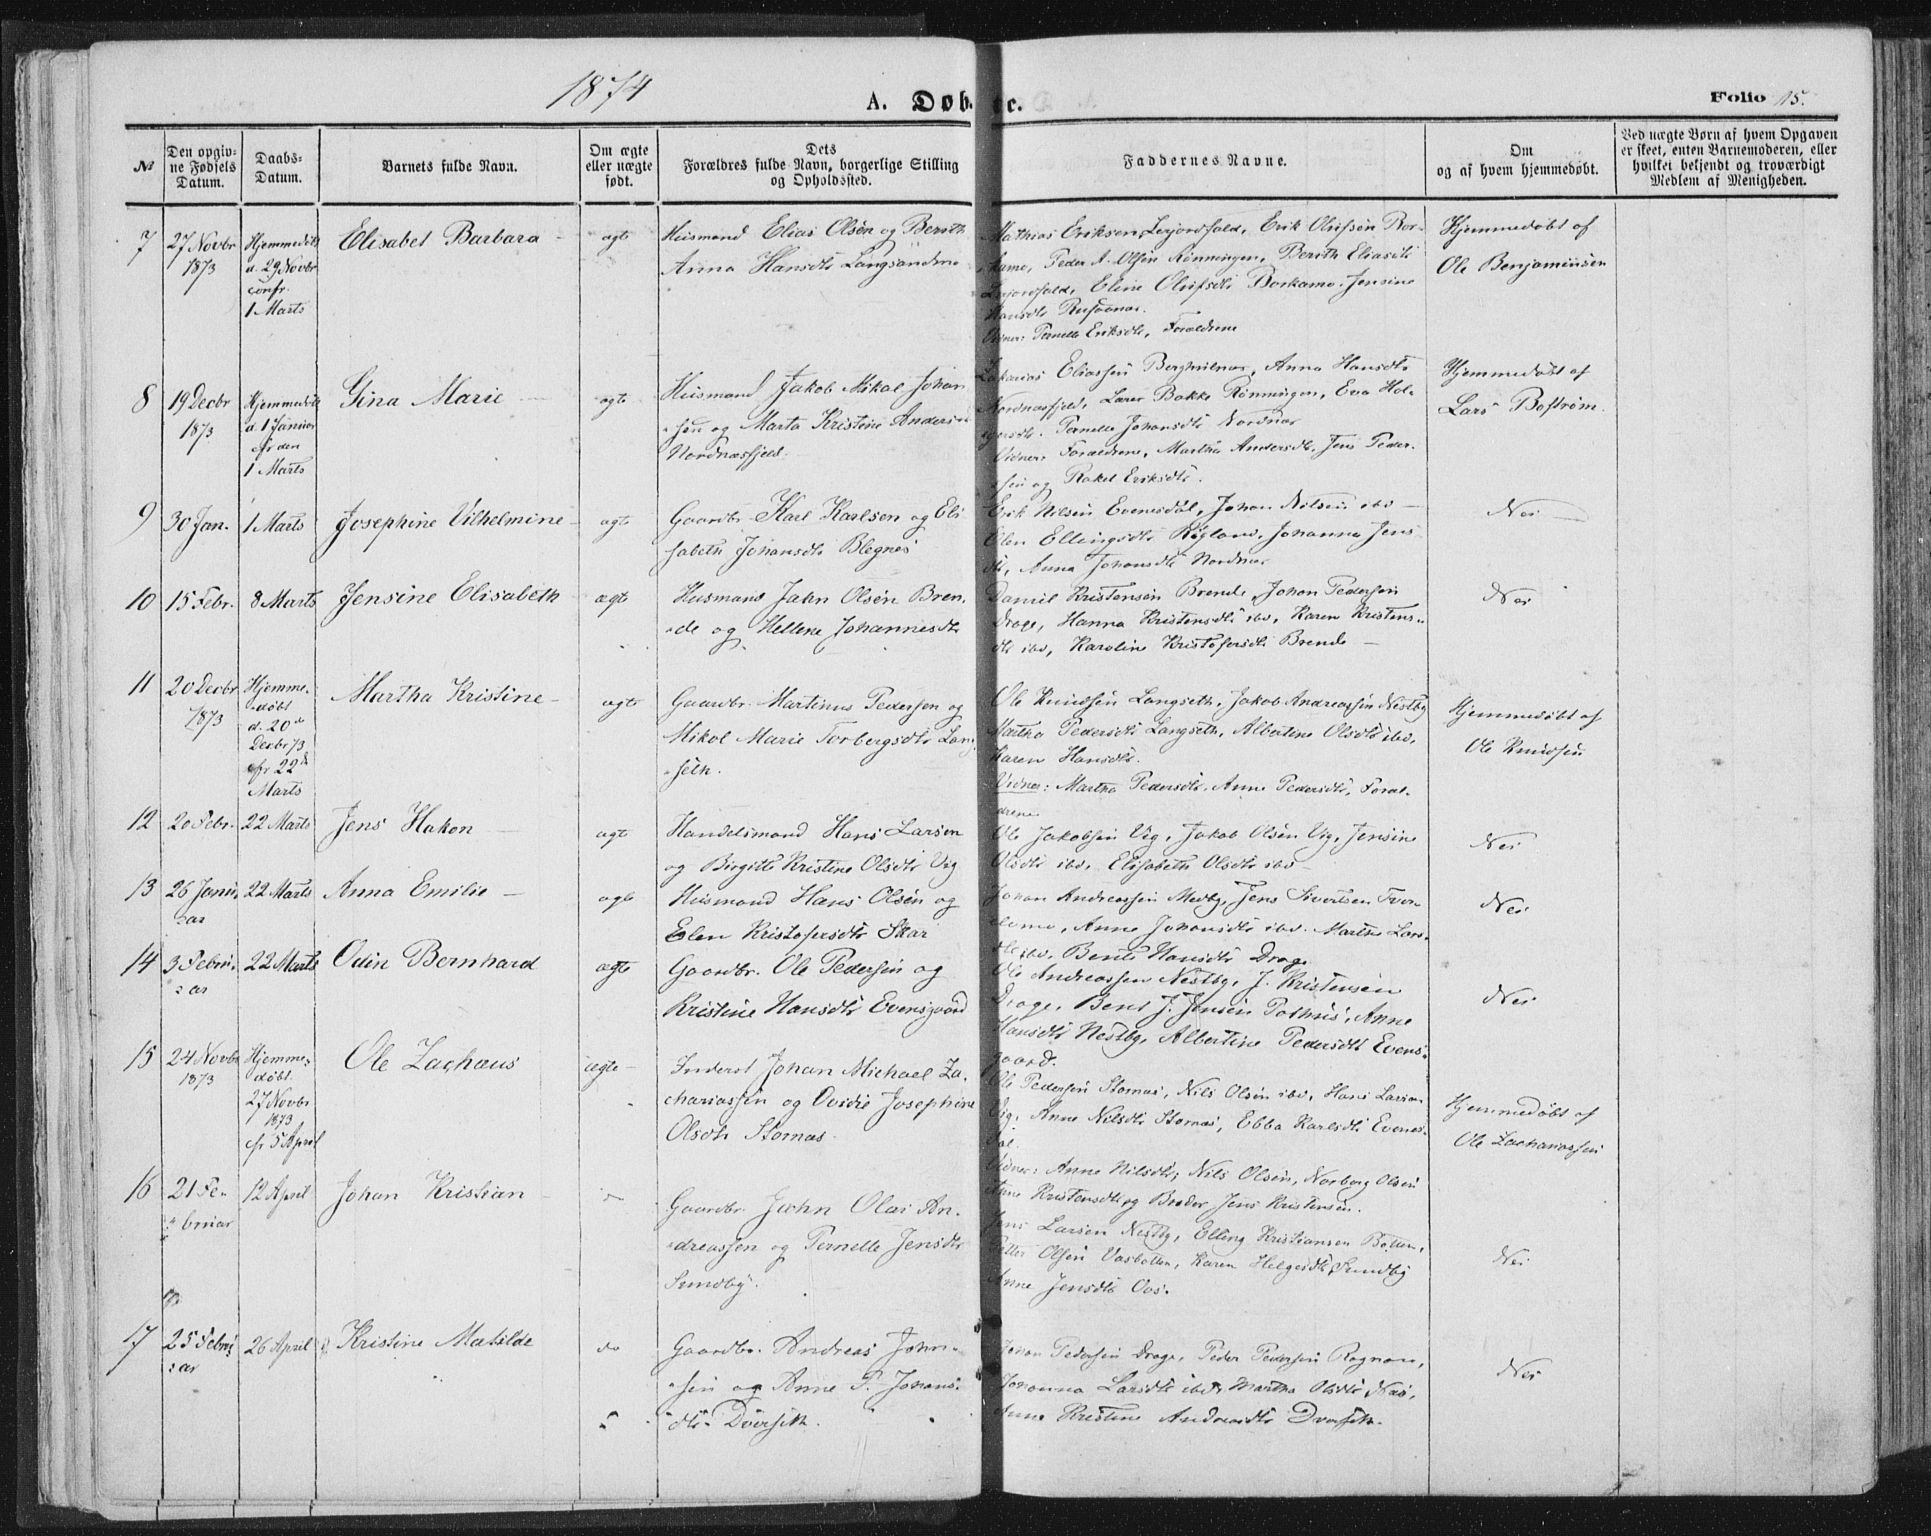 1874
A. Døbte.
Folio 15.
№
Den opgiv-
ne Fødsels
Datum.
Daabs-
Datum.
Barnets fulde Navn.
Om ægte
eller uægte
født.
Dets
Forældres fulde Navn, borgerlige Stilling
og Opholdssted.
Faddernes Navne.
Om
og af hvem hjemmedøbt.
Ved uægte Børn af hvem Opgaven
er skeet, enten Barnemoderen, eller
hvilket bekjendt og troværdigt
Medlem af Menigheden.
7
27 Novbr
1873
Hjemmedøbt
d. 29 Novbr
confr.
1 Marts
Elisabet Barbara
ægte
Husmand Elias Olsen og Berith
Anna Hansdtr Langsandmo
Mathias Eriksen, Lerjordfald, Erik Olufsen Bor-
kamo, Peder A. Olsen Rønningen, Berith Eliasdtr
Lerjordfald, Eline Olufsdtr Borkamo, Jensine
Hansdtr Rusaanes.
Vidner: Pernelle Eriksdtr, Forældrene
Hjemmedøbt af
Ole Benjaminsen
8
19 Decbr
1873
Hjemmedøbt
d. 1 Januar
cfr den
1 Marts
Gina Marie
ægte
Husmand Jakob Mikal Johan
sen og Marta Kristine Andersd
Nordnæsfjeld.
Zakarias Eliassen Berghulnes, Anna Hansdtr
Nordnæsfjeld, Lærer Bakke Rønningen, Eva Hol-
gersdtr. Pernelle Johansdtr Nordnæs
Vidner: Forældrene, Martha Andersdtr, Jens Peder-
sen og Rakel Eriksdtr.
Hjemmedøbt af
Lars Bostrøm.
9
30 Jan.
1 Marts
Josephine Vilhelmine
ægte
Gaardbr. Karl Karlsen og Eli
sabeth Johansdtr Blegnes
Erik Nilsen Evenesdal, Johan Nilsen ibd
Elen Ellingsdtr Røgland, Johanna Jens
dtr, Anna Johansdtr Nordnæs
Nei
10
15 Febr.
8 Marts
Jensine Elisabeth
ægte
Husmand Jahn Olsen Bren
de og Hellene Johannesdtr
Daniel Kristensen Brende, Johan Pedersen
Drage, Hanna Kristensdtr ibd, Karen Kristens
dtr ibd, Karoline Kristofersdtr Brende
Nei
11
20 Decbr
1873
Hjemme-
døbt
d. 20de
Decbr 73
cfr 22de
Marts
Martha Kristine
ægte
Gaardbr. Martinus Pedersen og
Mikol Marie Torbergsdtr Lang
seth.
Ole Knudsen Langseth, Jakob Andreassen Nestby
Martha Pedersdtr Langseth, Albertine Olsdtr ibd,
Karen Hansdtr.
Vidner: Martha Pedersdtr, Anne Pedersdtr, Foræl-
drene
Hjemmedøbt af
Ole Knudsen
12
20 Febr.
22 Marts
Jens Hakon
ægte
Handelsmand Hans Larsen
og Birgitte Kristine Olsdtr Vig
Ole Jakobsen Vig, Jakob Olsen Vig, Jensine
Olsdtr ibd, Elisabeth Olsdtr ibd
Nei
13
26 Janu
ar
22 Marts
Anna Emilie
ægte
Husmand Hans Olsen og
Elen Kristofersdtr Skar
Johan Andreassen Medby, Jens Sivertsen Tver-
aamo, Anne Johansdtr ibd. Martha Lars-
dtr ibd, Bente Hansdtr Drage
Nei
14
3 Febru
ar
22 Marts
Odin Bernhard
ægte
Gaardbr. Ole Pedersen og
Kristine Hansdtr Evensgaard
Ole Andreassen Nestby, J. Kristensen
Drage, Bent J. Jensen Pothus, Anne
Hansdtr Nestby, Albertine Pedersdtr Evens-
gaard.
Nei
15
24 Novbr
1873
Hjemme-
døbt
27 Novbr
1873
cfr 5 April
Ole Zachæus
ægte
Inderst Johan Michael Za
chariassen og Ovidie Josephine
Olsdtr Stornæs
Ole Pedersen Stornæs, Nils Olsen ibd, Hans Larsen
Vig, Anne Nilsdtr Stornæs, Ebba Karlsdtr Evenes-
dal.
Vidner: Anne Nilsdtr, Nils Olsen, Norberg Olsen
Anne Kristensdtr og Broder Jens Kristensen.
Hjemmedøbt af
Ole Zachariassen
16
21 Fe
bruar
12 April
Johan Kristian
do
Gaardbr John Olai An
dreassen og Pernelle Jensdtr
Sundby.
Jens Larsen Nestby, Elling Kristiansen Botten,
Petter Olsen Vasbotten, Karen Helgesdtr Sundby
Anne Jensdtr Oos.
Nei
17
25 Febru
ar
26 April
Kristine Matilde
do
Gaardbr. Andreas John
sen og Anne P. Johans
dtr Dverseth.
Johan Pedersen Drage, Peder Pedersen Rognan,
Johanna Larsdtr ibd, Martha Olsdtr Næs,
Anne Kristine Andreasdtr Dverseth.
Nei